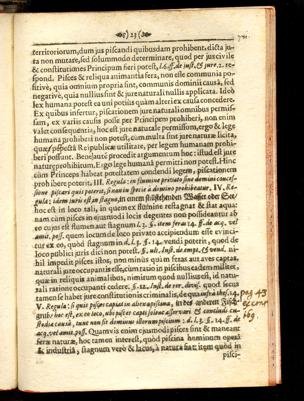 23
territoriorum, dum jus piscandi quibusdam prohibent. dicta ju-
ra non mutare, sed solummodo determinare, quod per jus civile
& constitutiones Principum fieri potest, l. 6. ff. de just. & jure. 2. re-
spond. Pisces & reliqua animantia fera, non esse communia po-
sitivè, quia omnium propria sint, communis dominii causâ, sed
negativè, quia nullius sint & jure naturali nullis applicita. Ideò
lex humana potest ea uni potiùs quàm alteri ex causa concedere.
Ex quibus infertur, piscationem jure naturali omnibus permis-
sam, ex variis causis posse per Principem prohiberi, non enim
valet consequentia, hoc est jure naturale permissum, ergo & lege
humana prohiberi non potest, cum multa sint jure naturæ licita,
quæ Reipublicæ utilitate, per legem humanam prohi-
beri possunt. Benè autè procedit argumentum hoc: istud est jure
naturæ prohibitum. Ergo lege humanâ permitti non potest. Hinc
cum Princeps habeat potestatem condendi legem, piscationem
prohibere poterit, III. Regula: in flumine privato sine domini conces-
sione piscari quis potest, si non in specie à domino prohibeatur. IV. Re-
gula: idem juris est in stagno, in einem stillstehenden Wasser oder See
hoc est in loco tali, in quem ex flumine restagnat & stat aqua:
nam cùm pisces in ejusmodi locis degentes non possideantur ab
eo cujus est flumen aut stagnum l. 3. §. item feras 14. ff. de acq. vel
amit. poss. quem locum de loco privato accipiendum esse evinci-
tur ex eo, quòd stagnum in d. l. 3. §. 14. vendi poterit, quod de
loco publico juris dici non potest.
hil impedit pisces istos, non minùs quàm feras aut aves captas,
naturali jure occupantis effici, cum ratio in piscibus eadem militet,
quæ in reliquis animalibus, nimirum quod nullius est, id natu-
rali ratione occupanti cedere.
tamen sit habet jure constitutionis criminalis, de qua
V. Regula: si quis pisces captos in
grub: hoc est, ex eo loco, ubi pisces capti solent asservari & concludi cu-
stodiæ causâ, tunc non sit domini illorum piscium: d. l. 3. §. 14. ff. de
acq. vel amit. poss. Quamvis enim ejusmodi pisces sint & maneant
feræ naturæ, hoc tamen interest, quòd piscina hominum operâ
& industriâ, stagnum verò & lacus, à natura fiat: item quòd in
pisci-
pag. 48
169.